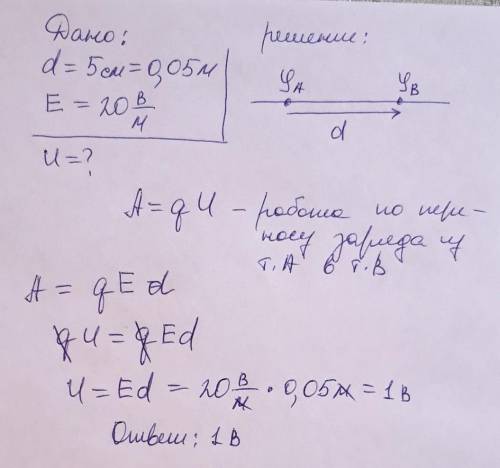 Дано:
d = 5 см = 0,05 м
E = 20 В/м
U = ?
решение:
φA φB
d
A = qU – работа по пере-
носу заряда из
т. А в т. В
A = qEd
qU = qEd
U = Ed = 20 В/м · 0,05 м = 1 В
Ответ: 1 В